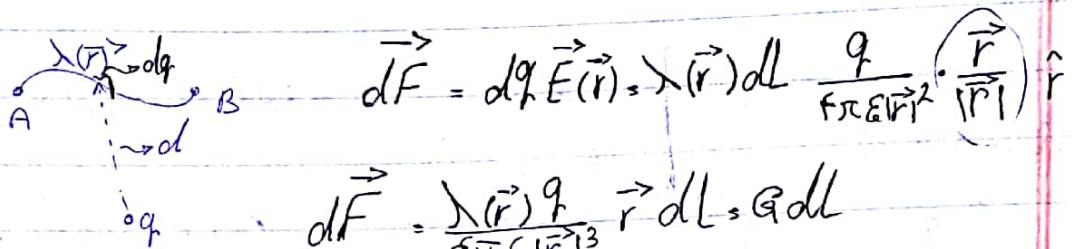 λ(r⃗) → dq
A B
→ d
q
dF⃗ = dq E⃗(r⃗) = λ(r⃗) dl q / ۴πε|r⃗|² · r⃗ / |r⃗| r̂
dF⃗ = λ(r⃗) q / ۴πε|r⃗|³ r⃗ dl = G dl